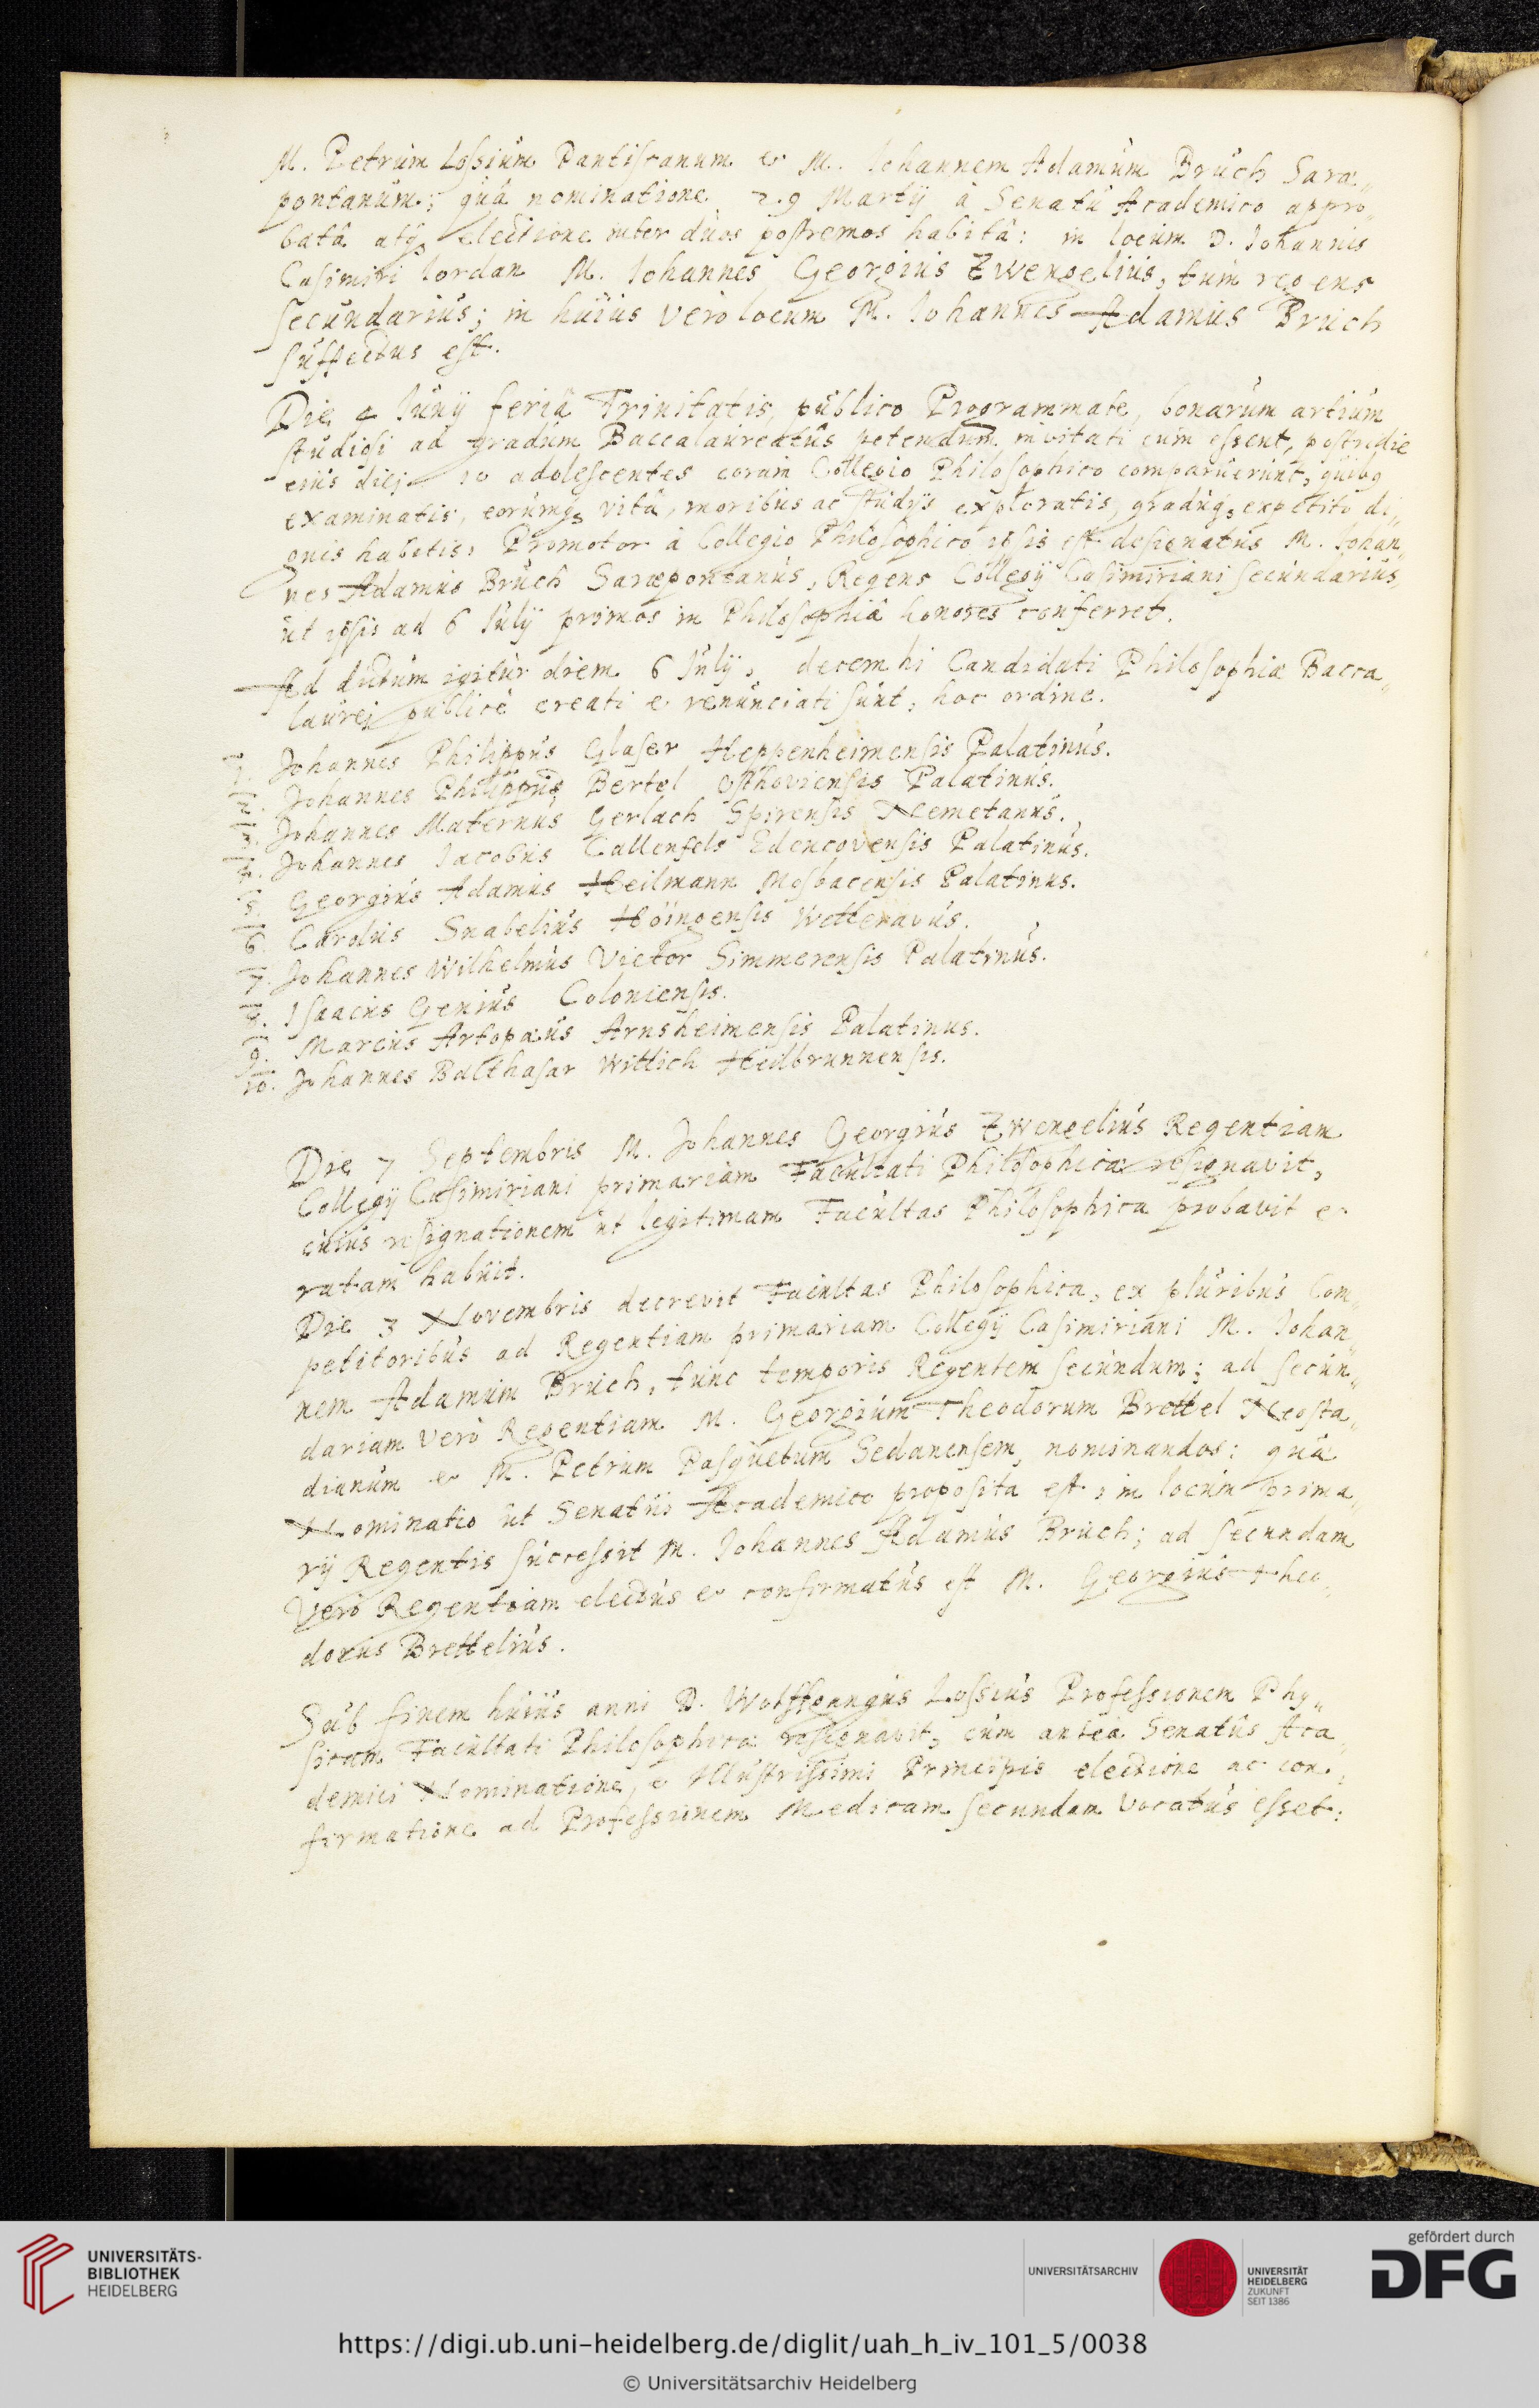 M. Petrum Lossium Dantiscanum & M. Iohannem Adamum Bruch Saræ„
pontanum; quâ nominatione 29 Martij à Senatu Academico appro„
batâ atq; electione inter duos postremos habitâ: in locum D. Iohannis
Casimiri Iordan M. Iohannes Georgius Zwengelius, tum regens
secundarius; in huius verò locum M. Iohannes Adamus Bruch
suffectus est.
Die 4 Iunij feriâ Trinitatis, publico Programmate, bonarum artium
studiosi ad gradum Baccalaureatûs petendum invitati cum essent, postridie
eius diei 10 adolescentes coram Collegio Philosophico comparuerunt, quibq
examinatis, eorumq; vitâ, moribus ac studijs exploratis, graduq; expetito di„
gnis habitis, Promotor à Collegio Philosophico ipsis est designatus M. Iohan„
nes Adamus Bruch Saræpontanus, Regens Collegij Casimiriani secundarius,
ut ipsis ad 6 Iulij primos in Philosophiâ honores conferret.
Ad dictum igitur diem 6 Iulij, decem hi Candidati Philosophiæ Bacca„
laurej publicè creati & renunciati sunt, hoc ordine.
1. Johannes Philippus Glaser Heppenheimensis Palatinus.
2. Johannes Philippus Bertel Osthoviensis Palatinus.
3. Johannes Maternus Gerlach Spirensis Nemetanus.
4. Johannes Iacobus Callenfels Edencovensis Palatinus.
5. Georgius Adamus Heilmann Mosbacensis Palatinus.
6. Carolus Snabelius Höingensis Wetteravus.
7. Johannes Wilhelmus Victor Simmerensis Palatinus.
8. Isaacus Genius Coloniensis.
9. Marcus Artopæus Arnsheimensis Palatinus.
10. Johannes Balthasar Wittich Heilbrunnensis.
Die 7 Septembris M. Johannes Georgius Zwengelius Regentiam
Collegij Casimiriani primariam Facultati Philosophicæ resignavit,
cuius resignationem ut legitimam Facultas Philosophica probavit &
ratam habuit.
Die 3 Novembris decrevit Facultas Philosophica, ex pluribus Com„
petitoribus ad Regentiam primariam Collegij Casimiriani M. Iohan„
nem Adamum Bruch, tunc temporis Regentem secundum; ad secun„
dariam verò Regentiam M. Georgium Theodorum Brettel Neosta„
dianum & M. Petrum Pasquetum Sedanensem, nominandos: quæ
Nominatio ut Senatui Academico proposita est, in locum prima„
rij Regentis successit M. Iohannes Adamus Bruch; ad secundam
Verò Regentiam electus & confirmatus est M. Georgius Theo„
dorus Brettelius.
Sub finem huius anni D. Wolffgangus Lossius Professionem Phy„
sicam Facultati Philosophicæ resignavit, cum anteà Senatûs Aca„
demici Nominatione, & Illustrissimi Principis electione ac con„
firmatione ad Professionem Medicam secundam vocatus esset:
UNIVERSITÄTS-
BIBLIOTHEK
HEIDELBERG
UNIVERSITÄTSARCHIV
UNIVERSITÄT
HEIDELBERG
ZUKUNFT
SEIT 1386
gefördert durch
DFG
https://digi.ub.uni-heidelberg.de/diglit/uah_h_iv_101_5/0038
© Universitätsarchiv Heidelberg